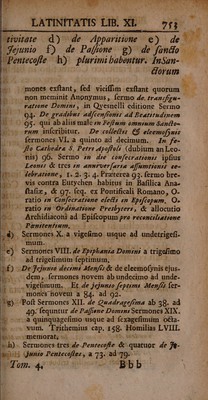 LATINITATIS LIB. XI. 753
tivitate d) de Apparitione e) de
Jejunio f) de Passione g) de sancto
Pentecoste h) plurimi habentur. In San-
ctorum
mones exstant, sed vicissim exstant quorum
non meminit Anonymus, sermo de transfigu-
ratione Domini, in Quesnelli editione Sermo
94. De gradibus adscensionis ad Beatitudinem
95. qui ab aliis male in Festum omnium Sancto-
rum inscribitur. De collectis & eleemosynis
sermones VI. a quinto ad decimum. In fe-
sto Cathedra S. Petri Apostoli (dubium an Leo-
nis) 96. Sermo in die consecrationis ipsius
Leonis & tres in anniversaria assumtionis ce-
lebratione, 1. 2. 3. 4. Præterea 93. sermo bre-
vis contra Eutychen habitus in Basilica Ana-
stasiæ, & 97. seq. ex Pontificali Romano, O-
ratio in Consecratione electi in Episcopum. O-
ratio in Ordinatione Presbyteri, & allocutio
Archidiaconi ad Episcopum pro reconciliatione
Pœnitentum.
d) Sermones X. a vigesimo usque ad undetrigesi-
mum.
e) Sermones VIII. de Epiphania Domini a trigesimo
ad trigesimum septimum,
f) De Jejunio decimi Mensis & de eleemosynis ejus-
dem, sermones novem ab undecimo ad unde-
vigesimum. Et de jejunio septimi Mensis ser-
mones novem a 84. ad 92.
g) Post Sermones XII. de Quadragesima ab 38. ad
49. sequntur de Passione Domini Sermones XIX.
a quinquagesimo usque ad sexagesimum octa-
vum. Trithemius cap. 158. Homilias LVIII.
memorat,
h) Sermones tres de Pentecoste & quatuor de Je-
junio Pentecostes, a 73. ad 79.
Tom. 4. B b b